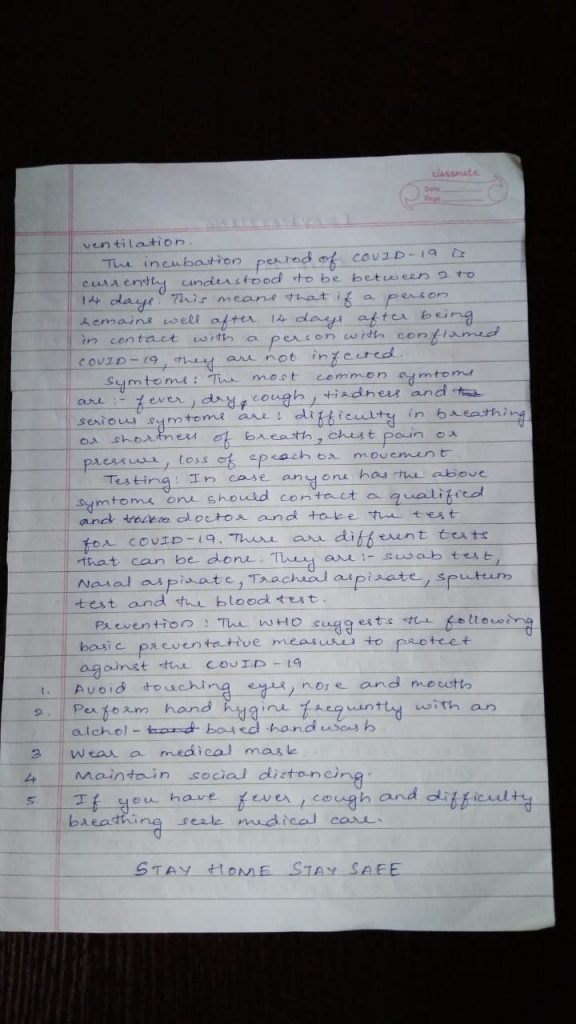 classmate
Date
Page
ventilation.
The incubation period of COVID-19 is
currently understood to be between 2 to
14 days. This means that if a person
remains well after 14 days after being
in contact with a person with confirmed
COVID-19, they are not infected.
Symtoms: The most common symtoms
are :- fever, dry cough, tirdness and the
serious symtoms are: difficulty in breathing
or shortness of breath, chest pain or
pressure, loss of speach or movement.
Testing: In case anyone has the above
symtoms one should contact a qualified
and doctor and take the test
for COVID-19. There are different tests
that can be done. They are :- swab test,
Nasal aspirate, Tracheal aspirate, sputum
test and the blood test.
Prevention : The WHO suggests the following
basic preventative measures to protect
against the COVID-19
1. Avoid touching eyes, nose and mouth
2. Perform hand hygine frequently with an
alchol- hand based handwash.
3 Wear a medical mask.
4 Maintain social distancing.
5 If you have fever, cough and difficulty
breathing seek medical care.
STAY HOME STAY SAFE